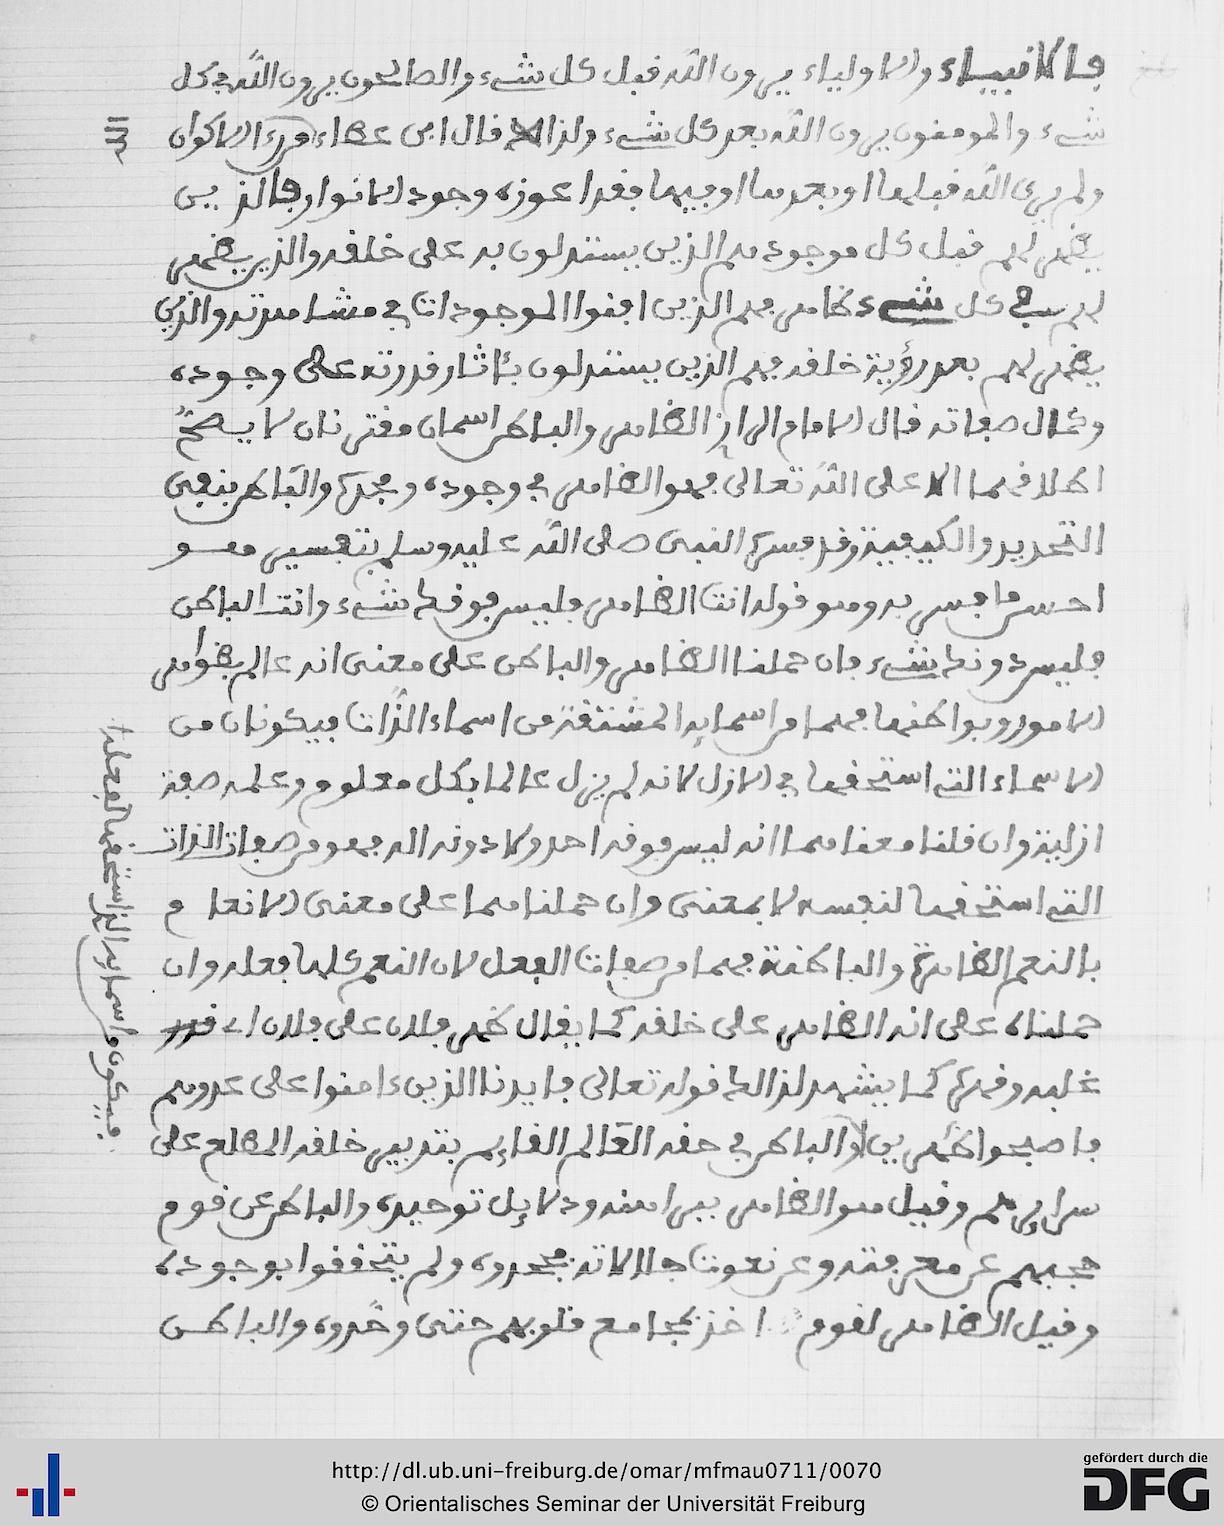 فالانبياء والاولياء يرون الله قبل كل شيء والصالحون يرون الله في كل
شيء والمومنون يرون الله بعد كل شيء ولذالك قال ابن عطاء من رءا الاكوان
ولم يرى الله قبلها او بعدها او فيها فقد اعوزه وجود الانوار فالذين
يظهر لهم قبل كل موجود هم الذين يستدلون به على خلقه والذين يظهر
لهم في كل شيء ظاهر هم الذين افنوا الموجودات في مشاهدته والذين
يظهر لهم بعد رؤية خلقه هم الذين يستدلون بئاثار قدرته على وجوده
وكمال صفاته قال الامام الرازي الظاهر والباطن اسمان مقترنان لا يصح
اطلاقهما الا على الله تعالى فهو الظاهر في وجوده ومجده والباطن بنفي
التحديد والكيفية وقد فسره النبي صلى الله عليه وسلم بتفسير هو
احسن ما فسر به وهو قوله انت الظاهر فليس فوقك شيء وانت الباطن
فليس دونك شيء فان حملنا الظاهر والباطن على معنى انه عالم بظواهر
الامور وبواطنها فهما من اسمايه المشتقة من اسماء الذات فيكونان من
الاسماء التي استحقها في الازل لانه لم يزل عالما بكل معلوم وعلمه صفة
ازلية وان قلنا معناهما انه ليس فوقه احد ولا دونه اله فهو من صفات الذات
التي استحقها لنفسه لا بمعنى وان حملناهما على معنى الانعام
بالنعم الظاهرة والباطنة فهما من صفات الفعل لان النعم كلها فعله وان
حملناه على انه الظاهر على خلقه كما يقال ظهر فلان على فلان اي قدر
غلبه وقهره كما يشهد لذالك قوله تعالى فايدنا الذين ءامنوا على عدوهم
فاصبحوا ظهرين والباطن في حقه العالم القايم بتدبير خلقه المطلع على
سرايرهم وقيل هو الظاهر ببراهينه ودلايل توحيده والباطن عن قوم
حجبهم عن معرفته وعن نعوت جلالاته فجحدوه ولم يتحققوا بوجوده
وقيل الظاهر لقوم اخذ بمجامع قلوبهم حتى وحدوه والباطن
فيكون من اسمايه التي استحقها لفعله
http://dl.ub.uni-freiburg.de/omar/mfmau0711/0070
© Orientalisches Seminar der Universität Freiburg
gefördert durch die
DFG